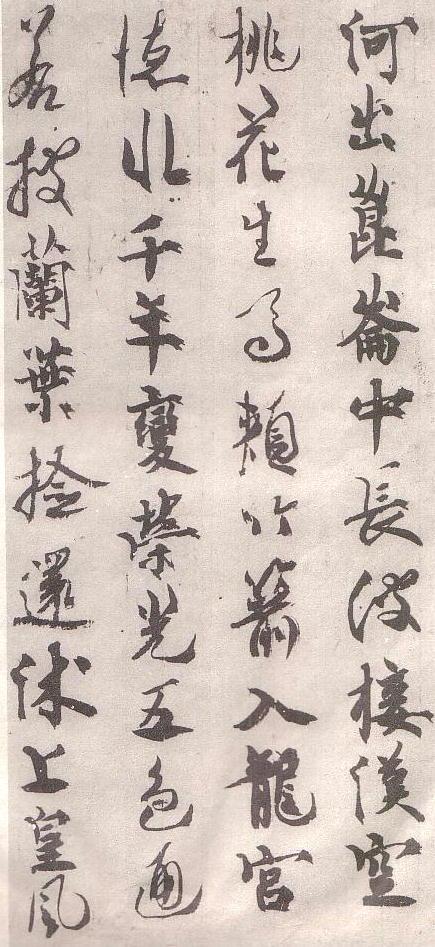 河出崑崙中長波接漢空
桃花生馬頰竹箭入龍宮
德水千年變榮光五色通
若披蘭葉檢還沐上皇風